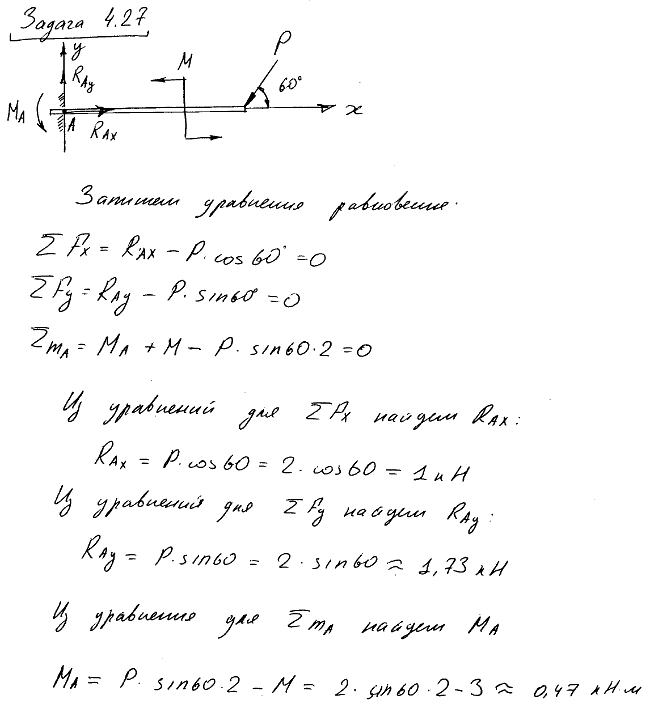 Задача 4.27
y
P
M
R_Ay
60°
M_A
A
R_Ax
x
Запишем уравнения равновесие.
ΣFx = R_Ax − P·cos60° = 0
ΣFy = R_Ay − P·sin60° = 0
Σm_A = M_A + M − P·sin60·2 = 0
Из уравнений для ΣFx найдем R_Ax:
R_Ax = P·cos60 = 2·cos60 = 1 кН
Из уравнений для ΣFy найдем R_Ay:
R_Ay = P·sin60 = 2·sin60 ≈ 1,73 кН
Из уравнения для Σm_A найдем M_A
M_A = P·sin60·2 − M = 2·sin60·2−3 ≈ 0,47 кН·м